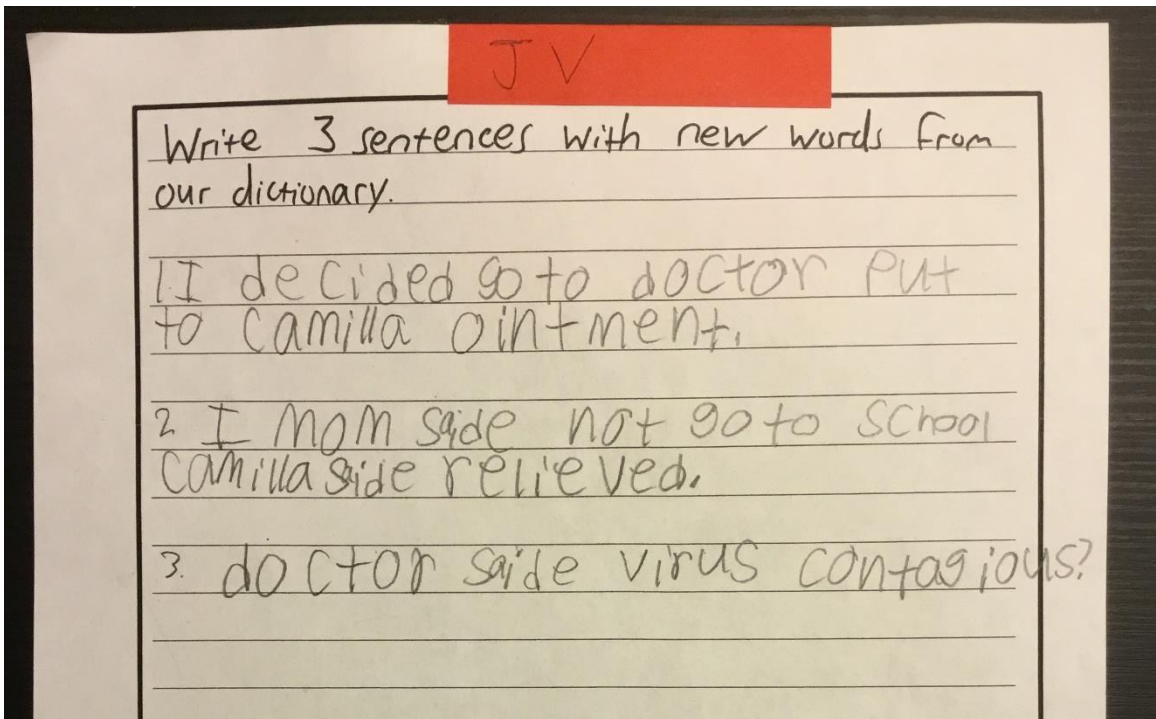 J V
Write 3 sentences with new words from
our dictionary.
1 I decided go to doctor put
to Camilla ointment.
2 I mom saide not go to school
Camilla saide relieved.
3. doctor saide virus contagious?